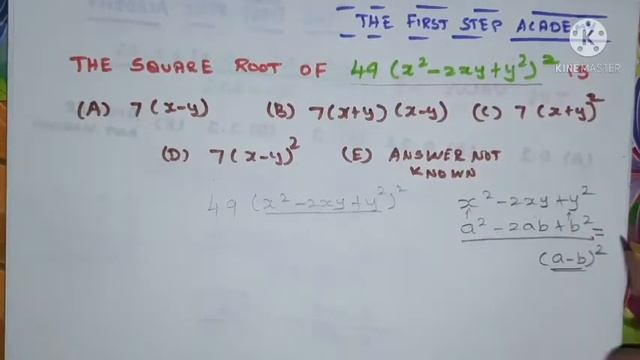 THE FIRST STEP ACADEM
K
KINEMASTER
THE SQUARE ROOT OF 49(x²-2xy+y²)²
(A) 7(x-y) (B) 7(x+y)(x-y) (C) 7(x+y)²
(D) 7(x-y)² (E) ANSWER NOT KNOWN
49 (x²-2xy+y²)²
x²-2xy+y²
a²-2ab+b² =
(a-b)²